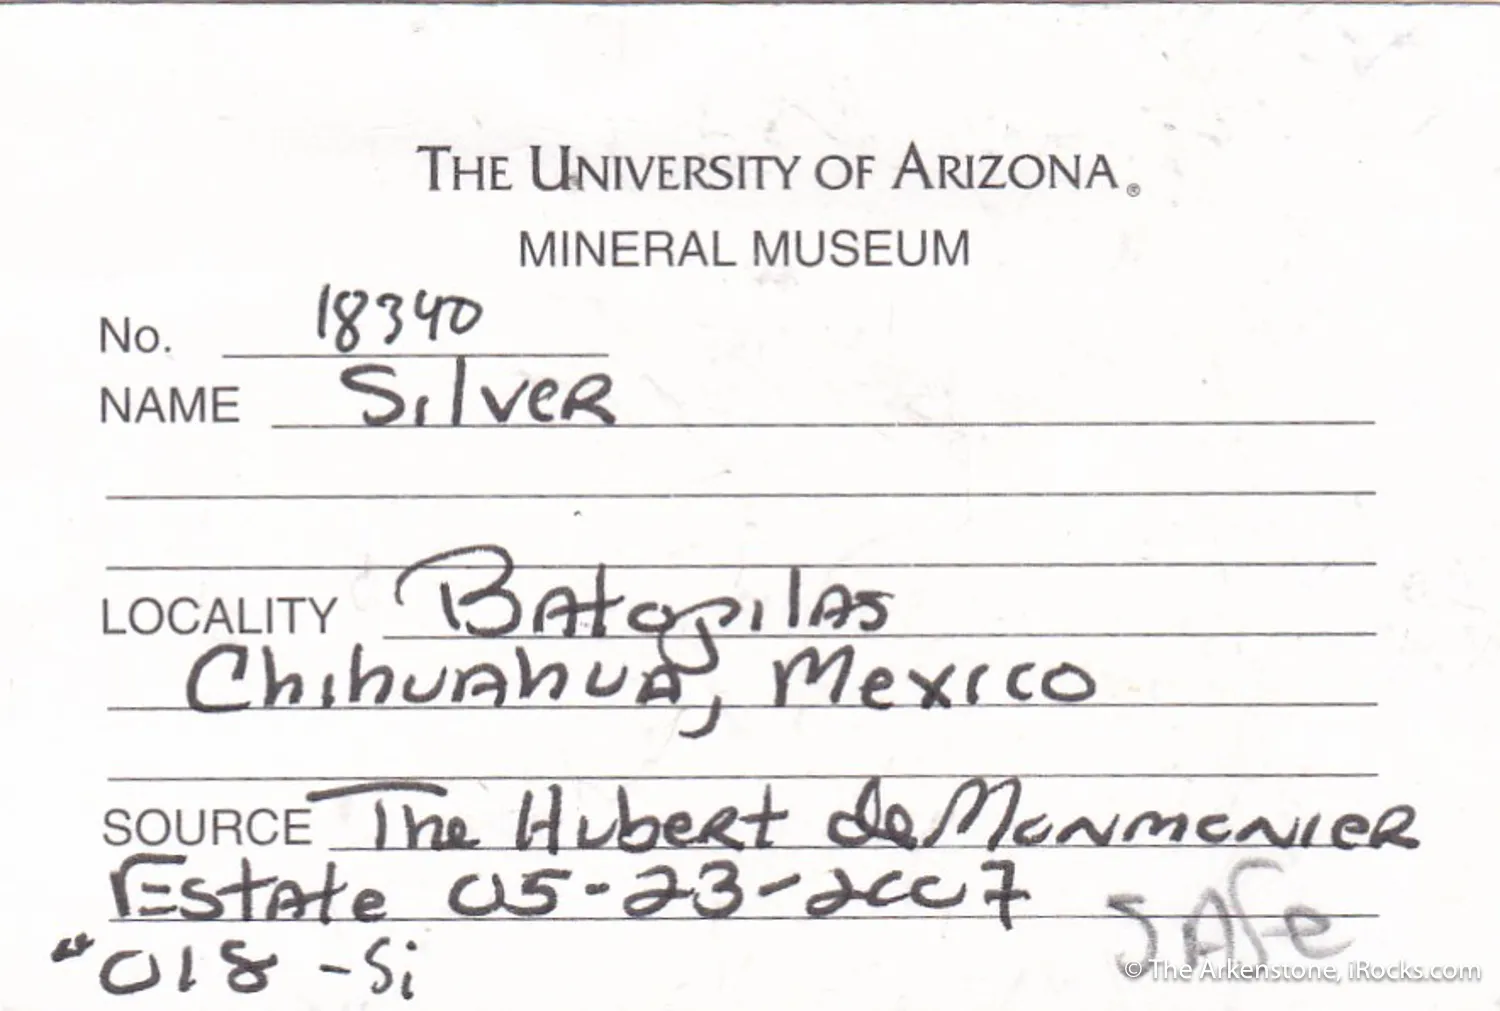 THE UNIVERSITY OF ARIZONA®
MINERAL MUSEUM
No. 18340
NAME Silver
LOCALITY Batopilas
Chihuahua, Mexico
SOURCE The Hubert de Monmonier
Estate 05-23-2007
"018 -Si
SAFe
© The Arkenstone, iRocks.com